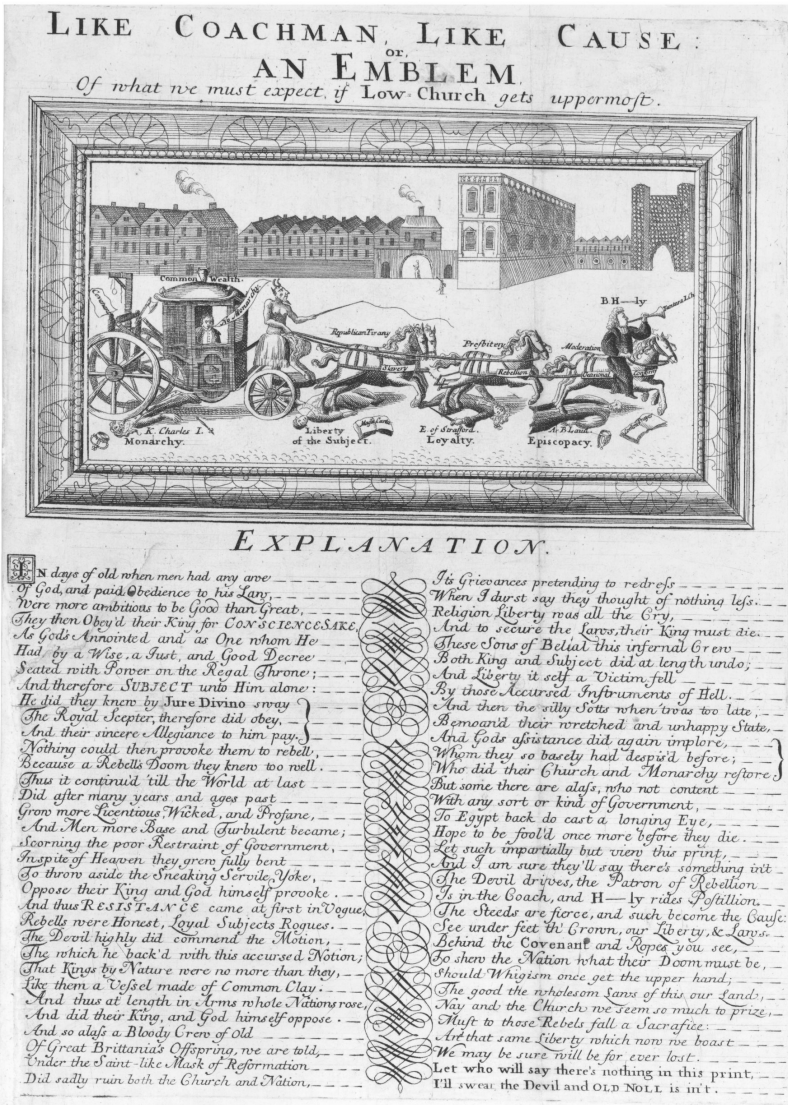 LIKE COACHMAN, LIKE CAUSE:
or,
AN EMBLEM,
Of what we must expect, if Low-Church gets uppermost.
Common Wealth.
B. H—ly
Republican Tirany
Presbitery
Moderation
Slavery
Rebellion
Occasional
K. Charles I.
Monarchy.
Liberty
of the Subject.
E. of Strafford.
Loyalty.
A: B Laud.
Episcopacy.
EXPLANATION.
IN days of old when men had any awe
Of God, and paid Obedience to his Law,
Were more ambitious to be Good than Great,
They then Obey'd their King for CONSCIENCE SAKE,
As Gods Annointed and as One whom He
Had, by a Wise, a Just, and Good Decree
Seated with Power on the Regal Throne;
And therefore SUBJECT unto Him alone:
He did they knew by Jure Divino sway
The Royal Scepter, therefore did obey,
And their sincere Allegiance to him pay.
Nothing could then provoke them to rebell,
Because a Rebells Doom they knew too well.
Thus it continu'd 'till the World at last
Did after many years and ages past
Grow more Licentious, Wicked, and Profane,
And Men more Base and Turbulent became;
Scorning the poor Restraint of Government,
In spite of Heaven they grew fully bent
To throw aside the Sneaking Servile Yoke,
Oppose their King and God himself provoke.
And thus RESISTANCE came at first in Vogue,
Rebells were Honest, Loyal Subjects Rogues.
The Devil highly did commend the Motion,
The which he back'd with this accursed Notion;
That Kings by Nature were no more than they,
Like them a Vessel made of Common Clay.
And thus at length in Arms whole Nations rose,
And did their King, and God himself oppose.
And so alass a Bloody Crew of Old
Of Great Brittania's Offspring, we are told,
Under the Saint-like Mask of Reformation
Did sadly ruin both the Church and Nation,
Its Grievances pretending to redress
When I durst say they thought of nothing less.
Religion Liberty was all the Cry,
And to secure the Laws, their King must die.
These Sons of Belial this infernal Crew
Both King and Subject did at length undo;
And Liberty it self a Victim fell
By those Accursed Instruments of Hell.
And then the silly Sotts when 'twas too late,
Bemoan'd their wretched and unhappy State,
And Gods assistance did again implore,
Whom they so basely had despis'd before;
Who did their Church and Monarchy restore
But some there are alass, who not content
With any sort or kind of Government,
To Egypt back do cast a longing Eye,
Hope to be fool'd once more before they die.
Let such impartially but view this print,
And I am sure they'll say there's something in't
The Devil drives, the Patron of Rebellion
Is in the Coach, and H—ly rides Postillion.
The Steeds are fierce, and such become the Cause:
See under feet th' Crown, our Liberty, & Laws.
Behind the Covenant and Ropes you see,
To shew the Nation what their Doom must be,
Should Whigism once get the upper hand;
The good the wholesom Laws of this our Land,
Nay and the Church we seem so much to prize,
Must to those Rebels fall a Sacrafice:
And that same Liberty which now we boast
We may be sure will be for ever lost.
Let who will say there's nothing in this print,
I'll swear the Devil and OLD NOLL is in't.